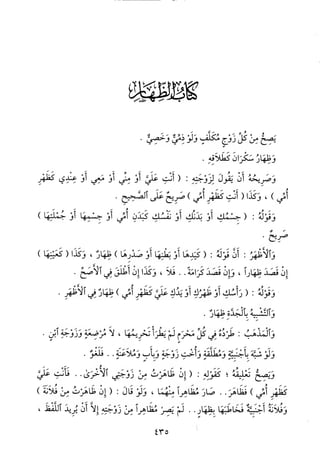 كتاب الظهار
يصح من كل زوج مكلف ولو ذمي وخصي .
وظهار سكران كطلاقه .
وصريحه أن يقول لزوجته : ( أنت علي أو مني أو معي أو عندي كظهر
أمي ) ، وكذا ( أنت كظهر أمي ) صريح على الصحيح .
وقوله : ( جسمك أو بدنك أو نفسك كبدن أمي أو جسمها أو جملتها )
صريح .
والأظهر : أن قوله : ( كيدها أو بطنها أو صدرها ) ظهار ، وكذا ( كعينها )
إن قصد ظهاراً ، وإن قصد كرامة .. فلا ، وكذا إن أطلق في الأصح .
وقوله : ( رأسك أو ظهرك أو يدك علي كظهر أمي ) ظهار في الأظهر .
والتشبيه بالجدة ظهار .
والمذهب : طرده في كل محرم لم يطرأ تحريمها ، لا مرضعة وزوجة ابن .
ولو شبه بأجنبية ومطلقة وأخت زوجة وبأب وملاعنة .. فلغو .
ويصح تعليقه ؛ كقوله : ( إن ظاهرت من زوجتي الأخرى .. فأنت علي
كظهر أمي ) فظاهر .. صار مظاهراً منهما ، ولو قال : ( إن ظاهرت من فلانة )
وفلانة أجنبية فخاطبها بظهار .. لم يصر مظاهراً من زوجته إلا أن يريد اللفظ ،
٤٣٥